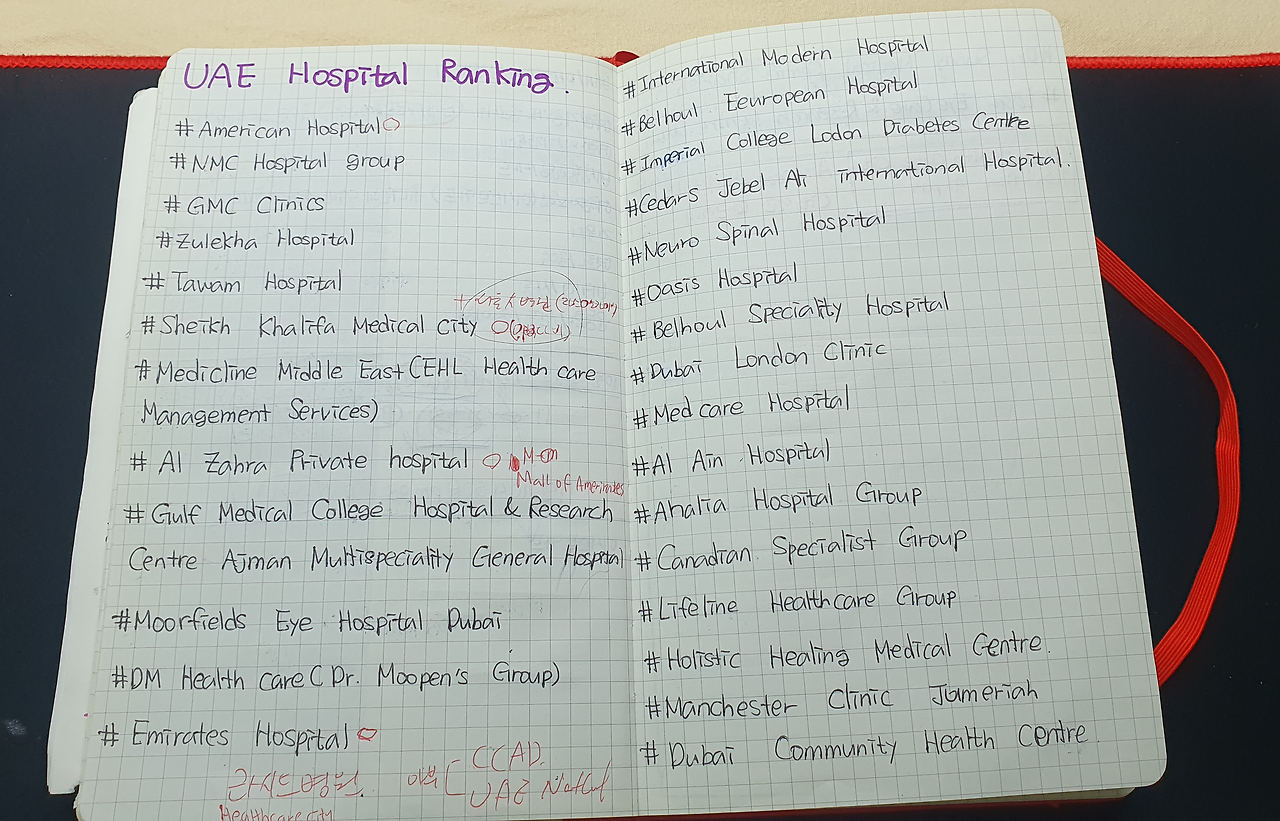 UAE Hospital Ranking.
#American Hospital
#NMC Hospital group
#GMC Clinics
#Zulekha Hospital
#Tawam Hospital
#Sheikh Khalifa Medical city
#Medicline Middle East(EHL Health care
Management Services)
#Al Zahra Private hospital
Mall of Amerirates
#Gulf Medical College Hospital & Research
Centre Ajman Multispeciality General Hospital
#Moorfields Eye Hospital Dubai
#DM Health care( Dr. Moopen's Group)
#Emirates Hospital
라시드병원
CCAD.
UAE
Healthcare city
#International Modern Hospital
#Belhoul Eeuropean Hospital
#Imperial College Lodon Diabetes Centre
#Cedars Jebel Ali international Hospital.
#Neuro Spinal Hospital
#Oasis Hospital
#Belhoul Speciality Hospital
#Dubai London Clinic
#Medcare Hospital
#Al Ain Hospital
#Ahalia Hospital Group
#Canadian Specialist Group
#Lifeline Healthcare Group
#Holistic Healing Medical Centre.
#Manchester Clinic Jumeriah
#Dubai Community Health Centre